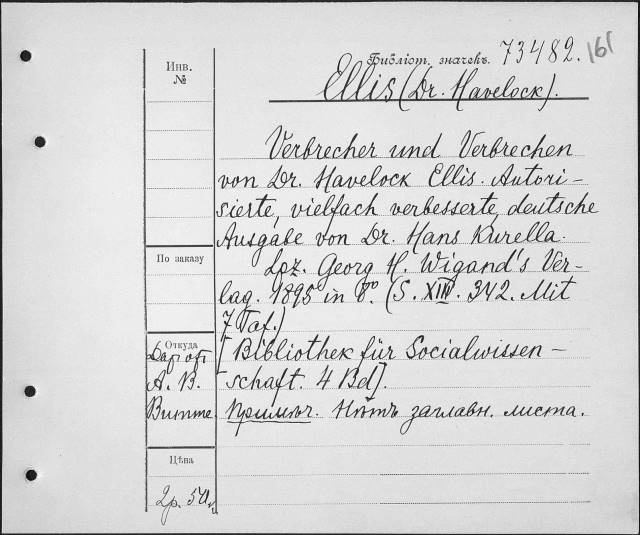 Библіот. значекъ. 73482. 161
Ellis (Dr. Havelock).
Инв.
№
Verbrecher und Verbrechen
von Dr. Havelock Ellis. Autori-
sierte, vielfach verbesserte, deutsche
Ausgabe von Dr. Hans Kurella.
По заказу
Lpz. Georg H. Wigand's Ver-
lag. 1895 in 8º. (S. XIII. 342. Mit
7 Taf.)
Откуда
[Bibliothek für Socialwissen-
schaft. 4 Bd].
А. В.
Витте
Примѣч. Нѣтъ заглавн. листа.
Цѣна
2р. 50к